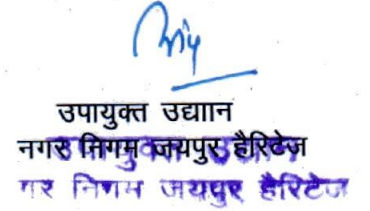 उपायुक्त उद्याान
नगर निगम जयपुर हैरिटेज
गर निगम जयपुर हैरिटेज